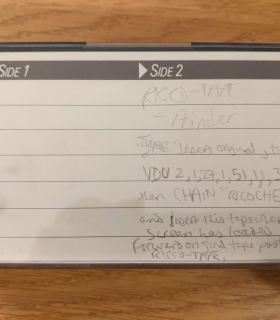 SIDE 1
SIDE 2
RICCO-TAPE
Type "Insert original, t
VDU 2,1,27,1,51,1,
then CHAIN "RICOCHE
and insert this tape
Screen has loaded
Forward original tape past
RICCO-TAPE.